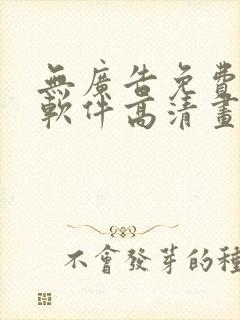 無廣告免費
軟件高清畫
不會發芽的種